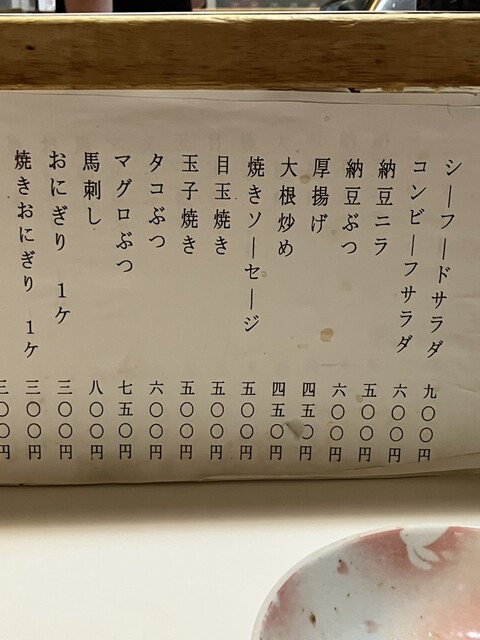 シーフードサラダ 九〇〇円
コンビーフサラダ 六〇〇円
納豆ニラ 五〇〇円
納豆ぶつ 六〇〇円
厚揚げ 四五〇円
大根炒め 四五〇円
焼きソーセージ 五〇〇円
目玉焼き 五〇〇円
玉子焼き 五〇〇円
タコぶつ 六〇〇円
マグロぶつ 七五〇円
馬刺し 八〇〇円
おにぎり 1ケ 三〇〇円
焼きおにぎり 1ケ 三〇〇円
三〇〇円